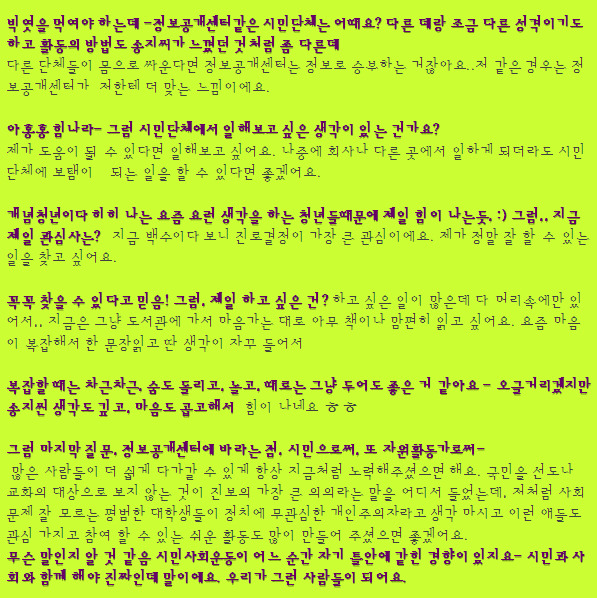 빅엿을 먹여야 하는데 -정보공개센터같은 시민단체는 어때요? 다른 데랑 조금 다른 성격이기도
하고 활동의 방법도 송지씨가 느꼈던 것처럼 좀 다른데
다른 단체들이 몸으로 싸운다면 정보공개센터는 정보로 승부하는 거잖아요..저 같은 경우는 정
보공개센터가 저한테 더 맞는 느낌이에요.
아홍홍 힘나라- 그럼 시민단체에서 일해보고 싶은 생각이 있는 건가요?
제가 도움이 될 수 있다면 일해보고 싶어요. 나중에 회사나 다른 곳에서 일하게 되더라도 시민
단체에 보탬이 되는 일을 할 수 있다면 좋겠어요.
개념청년이다 히히 나는 요즘 요런 생각을 하는 청년들때문에 제일 힘이 나는듯. :) 그럼.. 지금
제일 관심사는? 지금 백수이다 보니 진로결정이 가장 큰 관심이에요. 제가 정말 잘 할 수 있는
일을 찾고 싶어요.
꼭꼭 찾을 수 있다고 믿음! 그럼. 제일 하고 싶은 건? 하고 싶은 일이 많은데 다 머리속에만 있
어서.. 지금은 그냥 도서관에 가서 마음가는 대로 아무 책이나 맘편히 읽고 싶어요. 요즘 마음
이 복잡해서 한 문장읽고 딴 생각이 자꾸 들어서
복잡할 때는 차근차근. 숨도 돌리고. 놀고. 때로는 그냥 두어도 좋은 거 같아요 - 오글거리겠지만
송지씬 생각도 깊고. 마음도 곱고해서 힘이 나네요 ㅎㅎ
그럼 마지막 질문. 정보공개센터에 바라는 점. 시민으로써. 또 자원활동가로써-
많은 사람들이 더 쉽게 다가갈 수 있게 항상 지금처럼 노력해주셨으면 해요. 국민을 선도나
교화의 대상으로 보지 않는 것이 진보의 가장 큰 의의라는 말을 어디서 들었는데. 저처럼 사회
문제 잘 모르는 평범한 대학생들이 정치에 무관심한 개인주의자라고 생각 마시고 이런 애들도
관심 가지고 참여 할 수 있는 쉬운 활동도 많이 만들어 주셨으면 좋겠어요.
무슨 말인지 알 것 같음 시민사회운동이 어느 순간 자기 틀안에 갇힌 경향이 있지요- 시민과 사
회와 함께 해야 진짜인데 말이에요. 우리가 그런 사람들이 되어요.